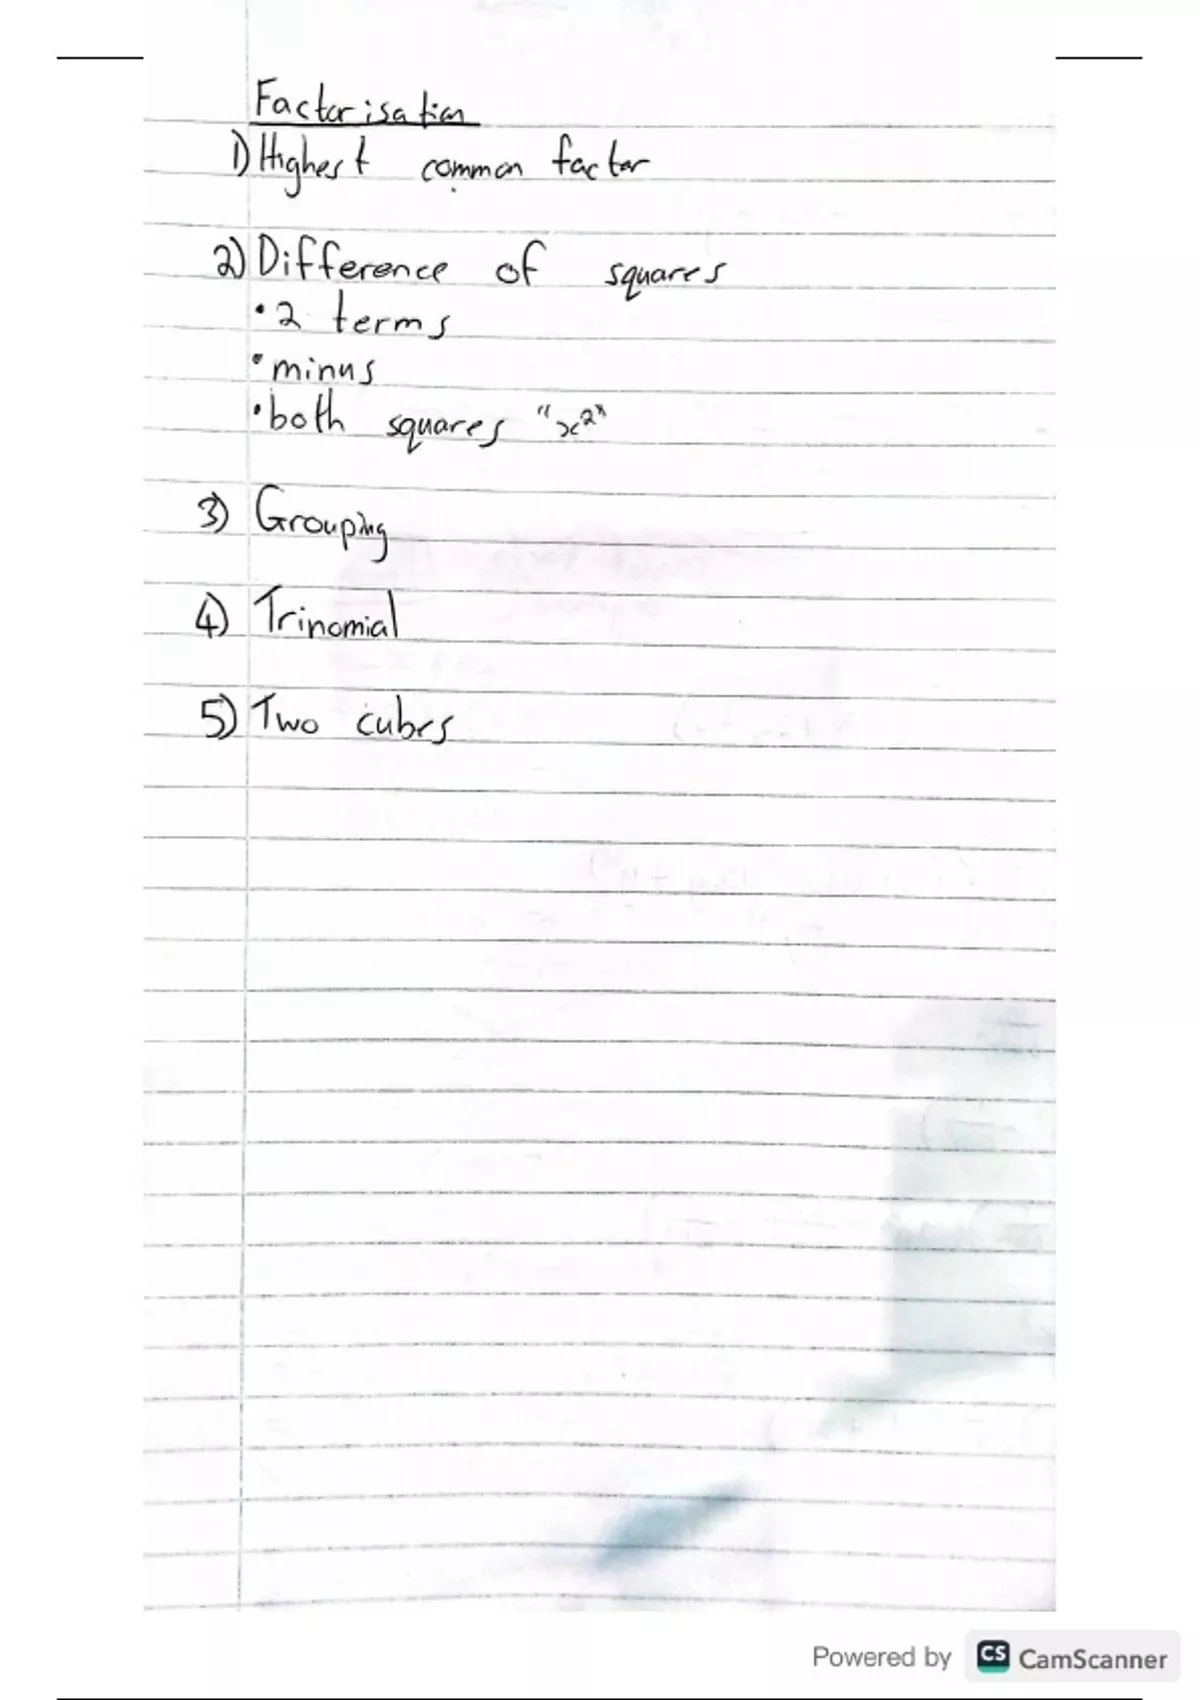 Factorisation
1) Highest common factor
2) Difference of squares
• 2 terms
• minus
• both squares "x²"
3) Grouping
4) Trinomial
5) Two cubes
Powered by CS CamScanner